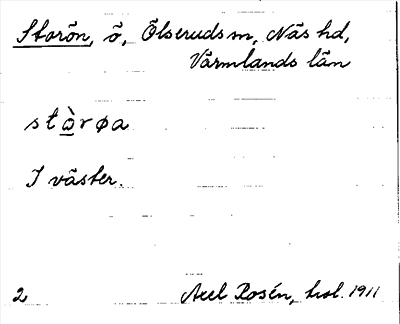 Storön, ö, Ölseruds sn, Näs hd,
Värmlands län
stàrøa
I väster.
2 Axel Rosén, hsl. 1911